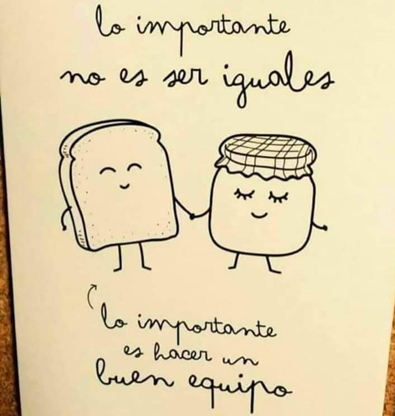 lo importante
no es ser iguales
lo importante
es hacer un
buen equipo